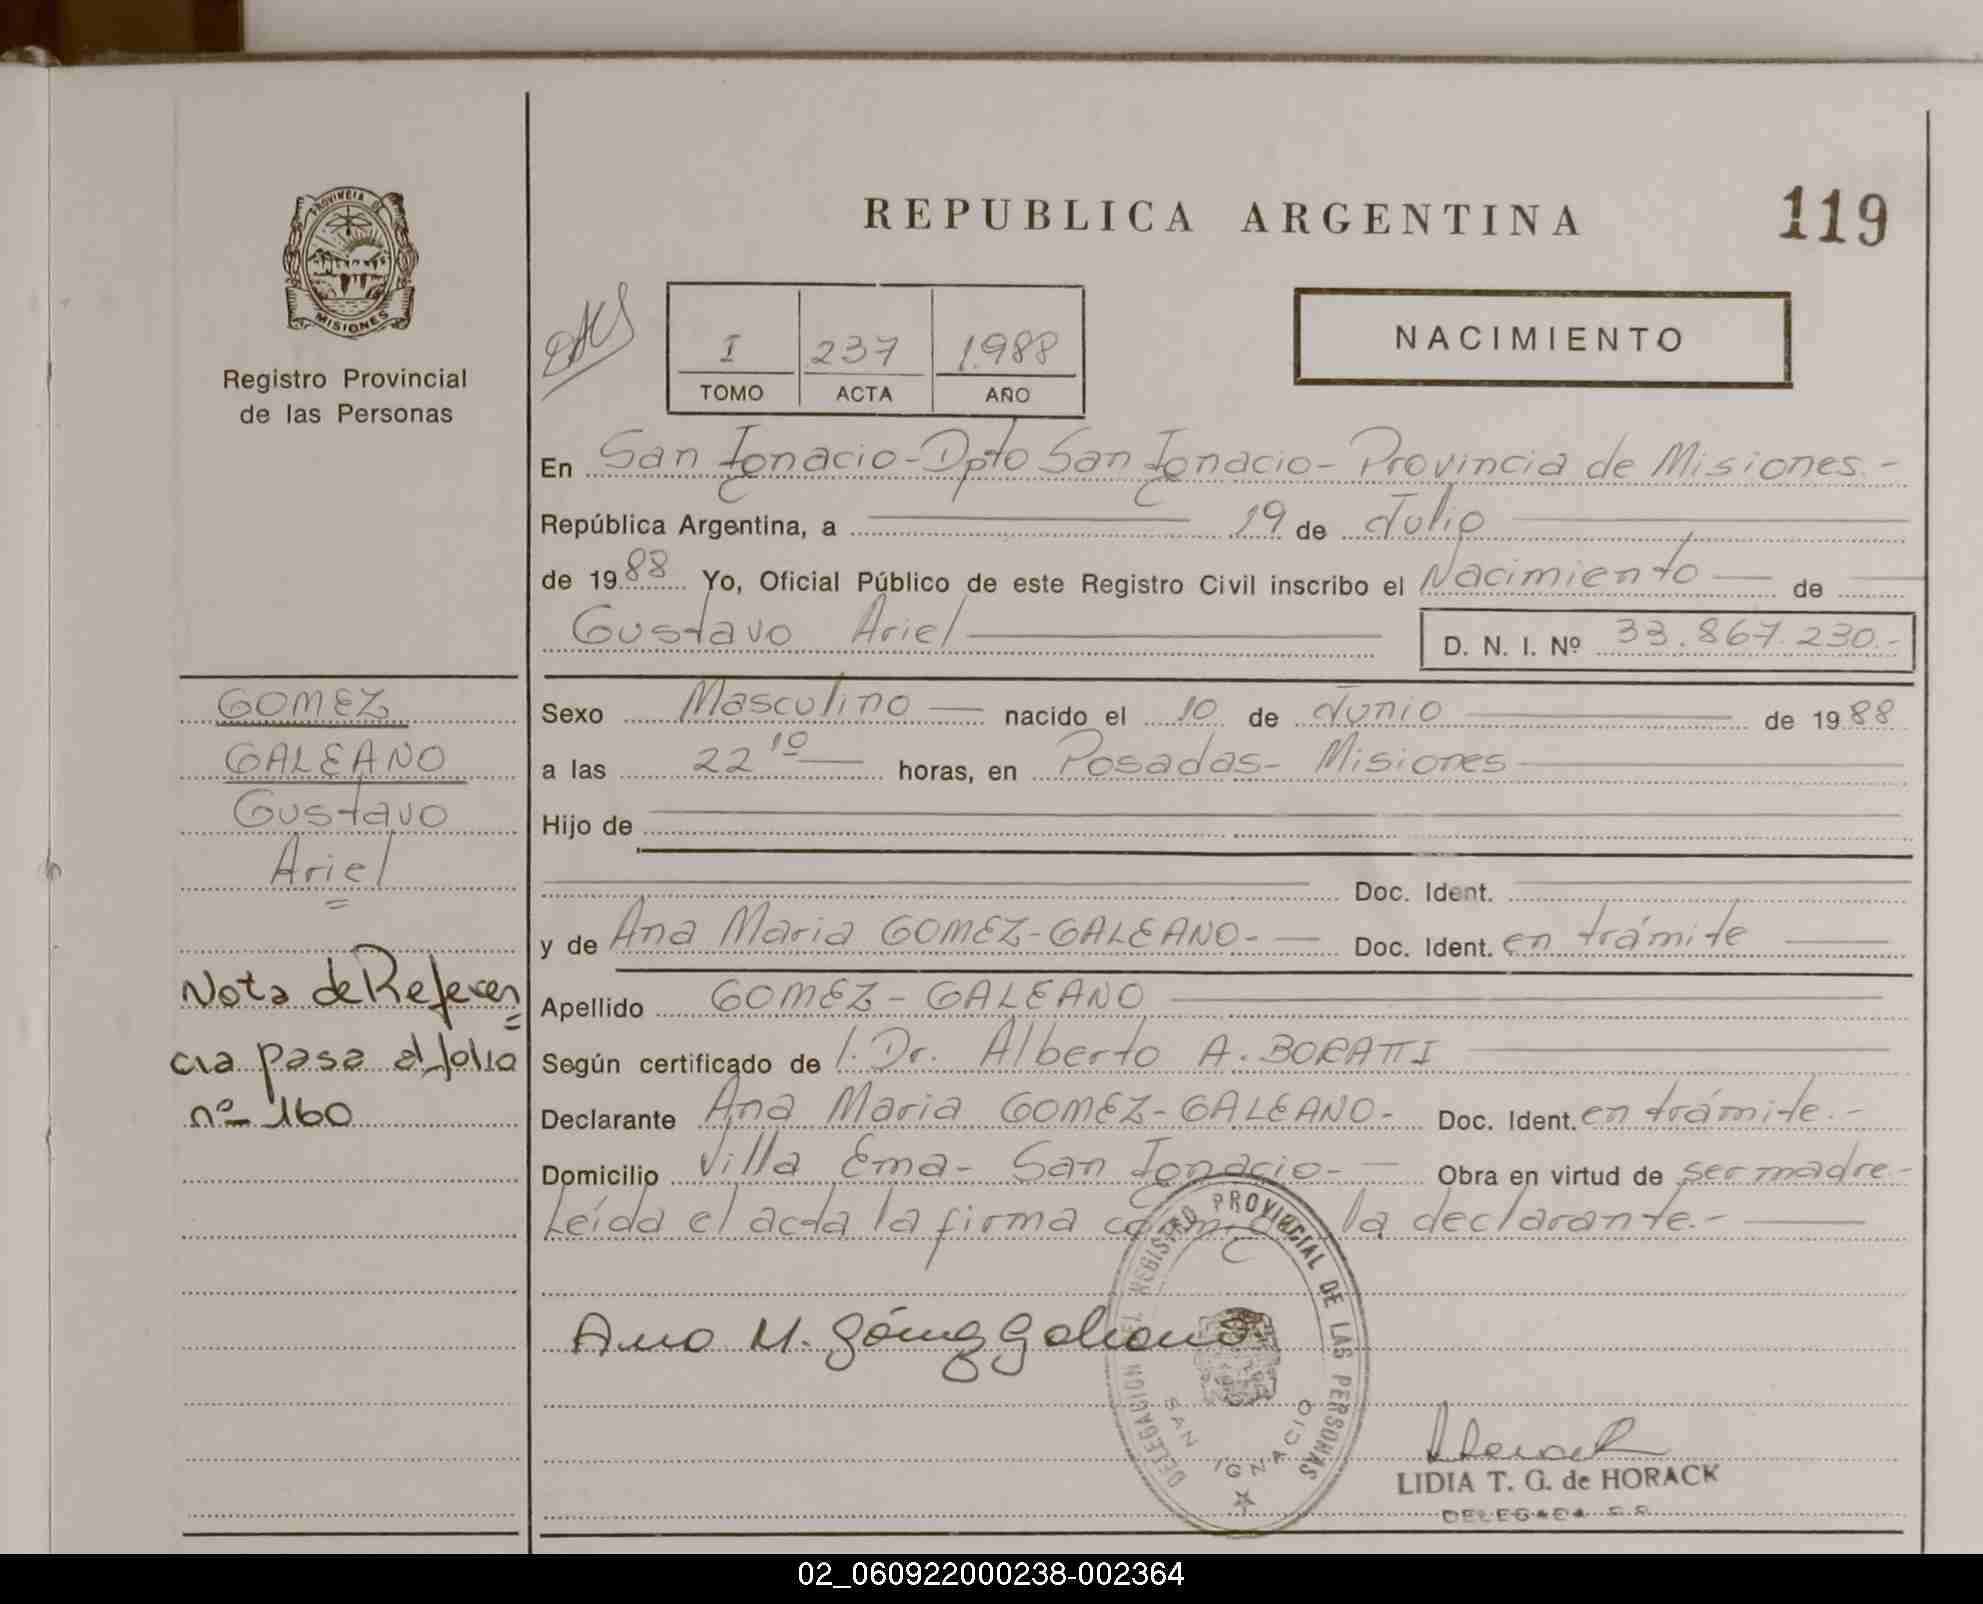 PROVINCIA DE
MISIONES
Registro Provincial
de las Personas
REPUBLICA ARGENTINA
119
I 237 1.988
TOMO ACTA AÑO
NACIMIENTO
En San Ignacio - Dpto San Ignacio - Provincia de Misiones.-
República Argentina, a 19 de Julio
de 1988 Yo, Oficial Público de este Registro Civil inscribo el Nacimiento de
Gustavo Ariel D. N. I. Nº 33.867.230.-
Sexo Masculino nacido el 10 de Junio de 1988
a las 22 10 horas, en Posadas - Misiones
Hijo de
Doc. Ident.
y de Ana Maria GOMEZ-GALEANO- Doc. Ident. en trámite
Apellido GOMEZ - GALEANO
Según certificado de l. Dr. Alberto A. BORATTI
Declarante Ana Maria GOMEZ-GALEANO- Doc. Ident. en trámite.-
Domicilio Villa Ema - San Ignacio - Obra en virtud de ser madre.-
Leída el acta la firma la declarante.-
GOMEZ
GALEANO
Gustavo
Ariel
Nota de Referen
cia pasa al folio
nº 160
Ana M. Gómez Galeano
DELEGACION DEL REGISTRO PROVINCIAL DE LAS PERSONAS
SAN IGNACIO
LIDIA T. G. de HORACK
DELEGADA
02_060922000238-002364